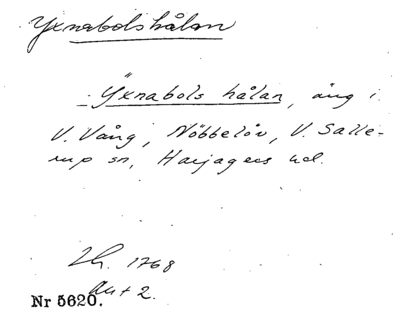 Yxnabolshålan
Yxnabols hålan, äng i
V. Vång, Nöbbelöv, V. Salle-
rup sn, Harjagers hd.
1768
Akt 2.
Nr 5620.